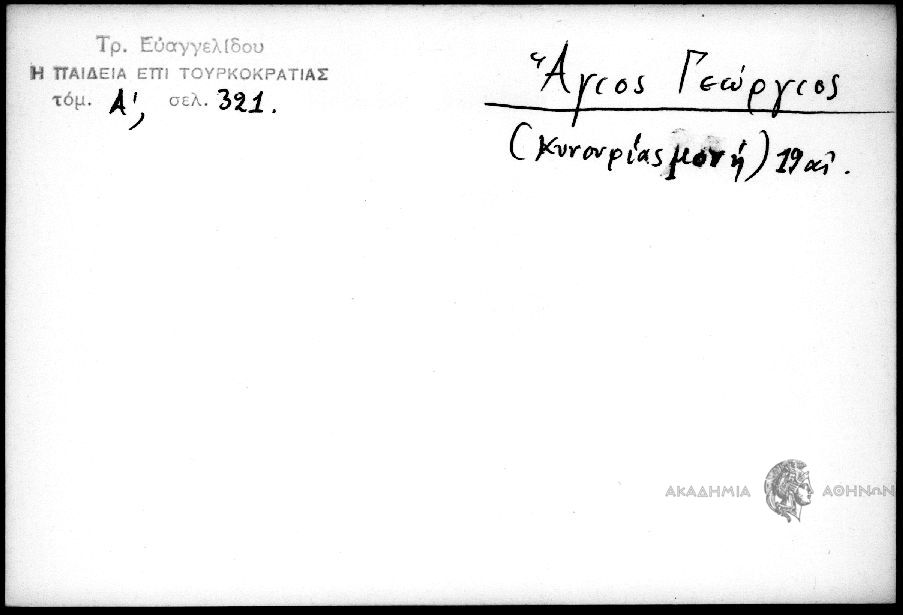 Τρ. Εὐαγγελίδου
Η ΠΑΙΔΕΙΑ ΕΠΙ ΤΟΥΡΚΟΚΡΑΤΙΑΣ
τόμ. Α', σελ. 321.
Ἅγιος Γεώργιος
(Κυνουρίας μονή) 19 αἰ.
ΑΚΑΔΗΜΙΑ ΑΘΗΝΩΝ